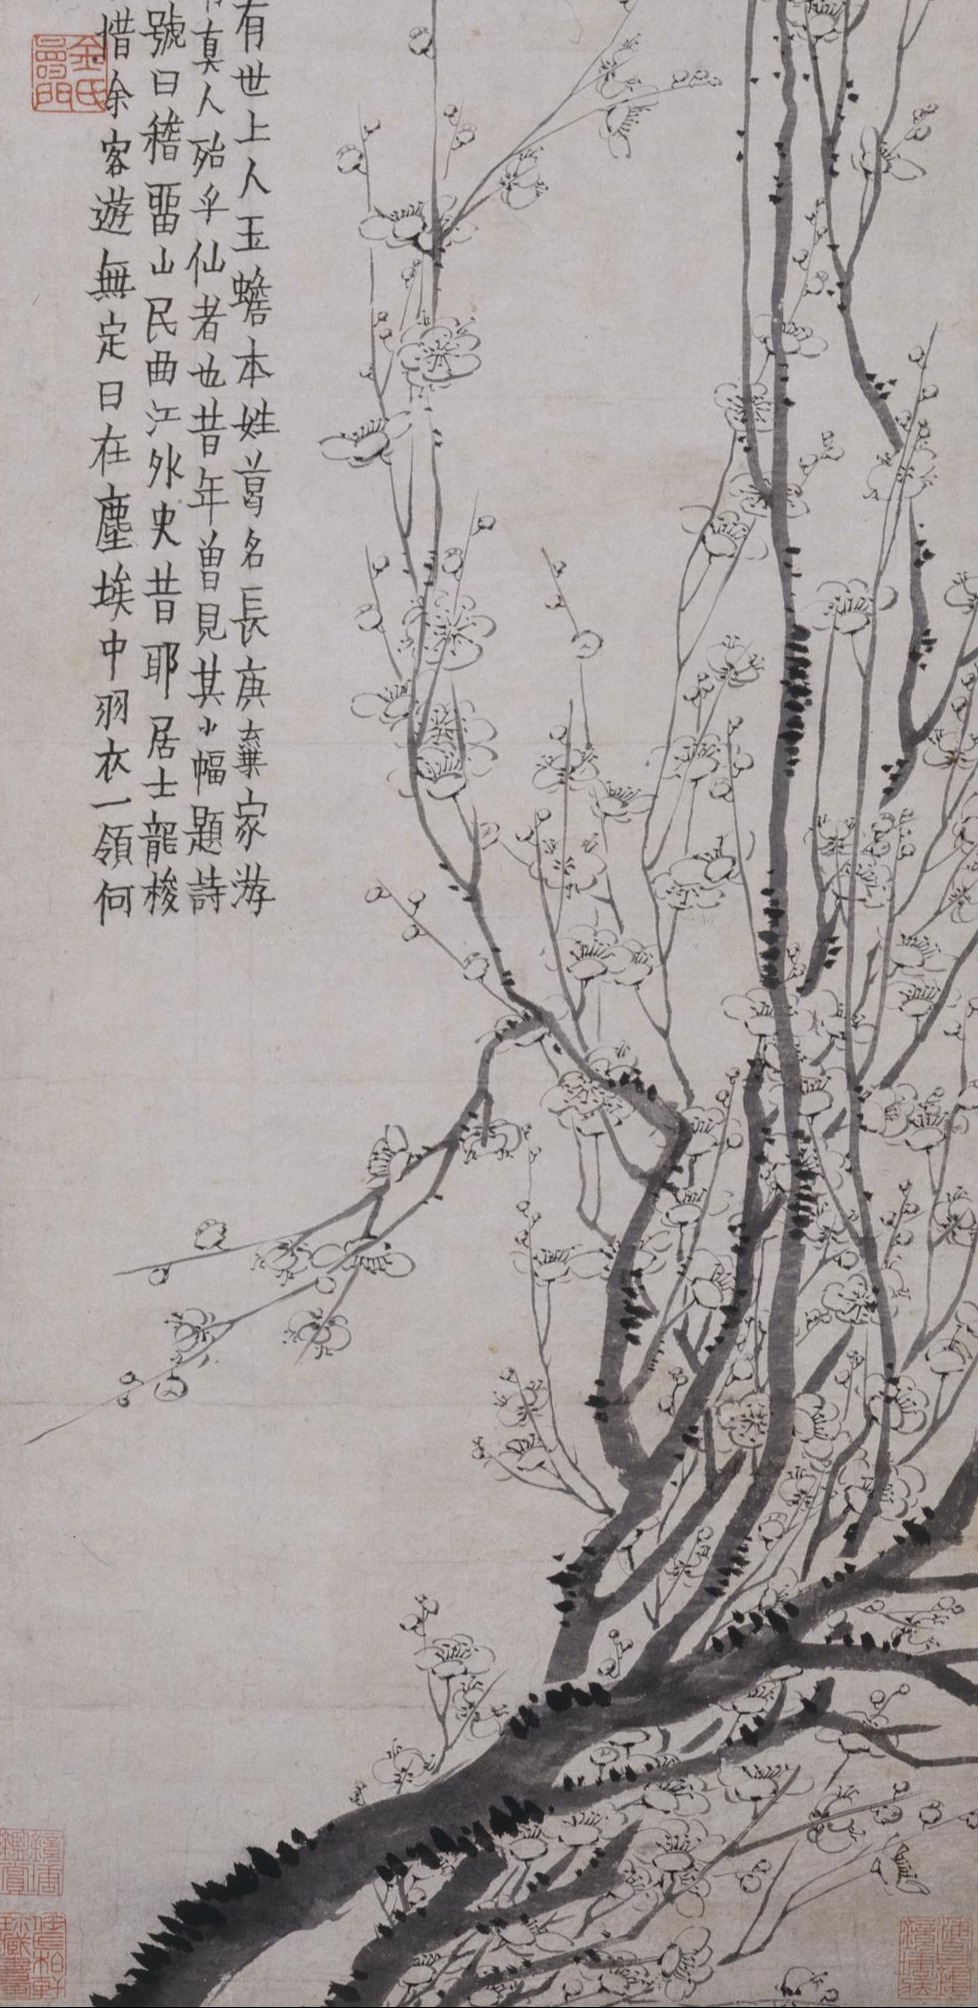 有世上人玉蟾本姓葛名長庚棄家游
真人殆乎仙者也昔年曾見其小幅題詩
號曰稽畱山民曲江外史昔耶居士龍梭
惜余客遊無定日在塵埃中羽衣一領何
金氏壽門